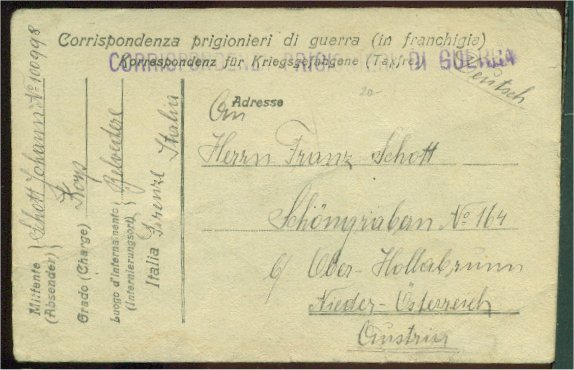 Corrispondenza prigionieri di guerra (in franchigia)
CORRISPONDENZA PRIGIONIERI DI GUERRA
Korrespondenz für Kriegsgefangene (Taxfrei)
Deutsch
20-
Adresse
An
Herrn Franz Schott
Schöngraben No 164
Ober-Hollabrunn
Nieder-Österreich
Austria
Mittente (Absender) Schott Johann No 100998
Grado (Charge) Korp
Luogo d'internamento (Internierungsort) Belvedere
Italia Firenze Italia